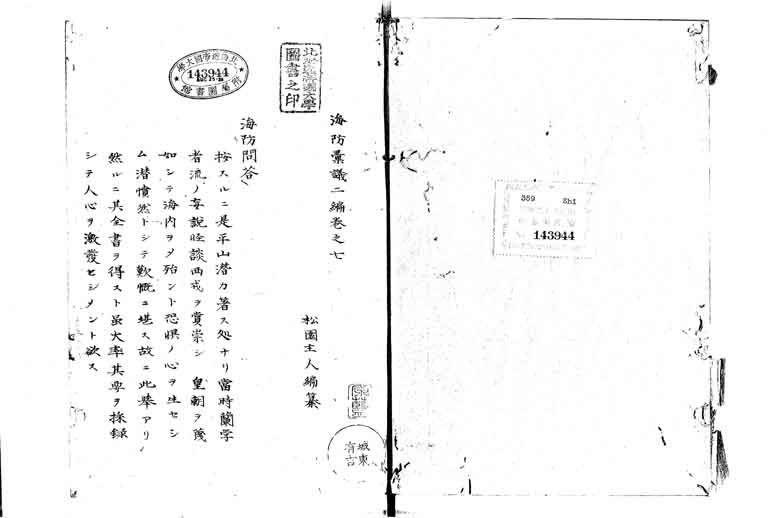 359 Shi
143944
海防彙議二編巻之七
松園主人編纂
城東
有吉
北海道帝國大學
圖書之印
海防問答
按スルニ是平山潜カ著ス処ナリ當時蘭学
者流ノ妄説怪談西戎ヲ賞崇シ 皇朝ヲ蔑
如シテ海内ヲメ殆ント恐惧ノ心ヲ生セシ
ム潜憤然トシテ歎慨ニ堪ス故ニ此挙アリ
然ルニ其全書ヲ得スト虽大率其要ヲ採録
シテ人心ヲ激發セシメント欲ス
北海道帝國大學
143944
附属圖書館